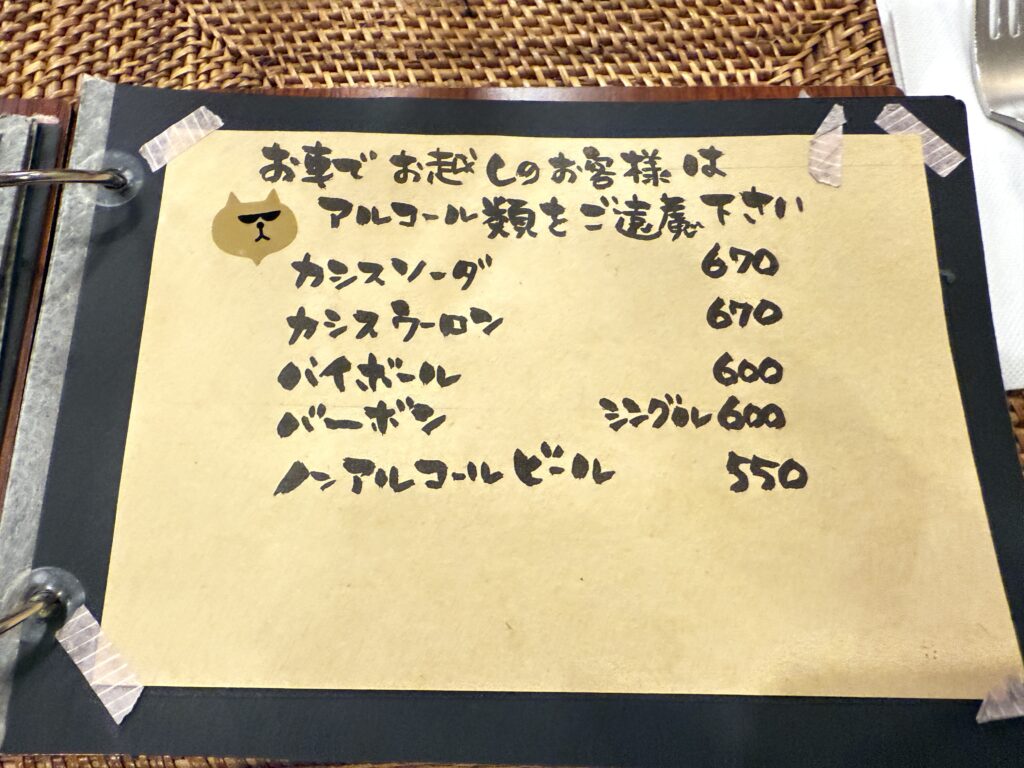 お車でお越しのお客様は
アルコール類をご遠慮下さい
カシスソーダ 670
カシスウーロン 670
ハイボール 600
バーボン シングル 600
ノンアルコールビール 550